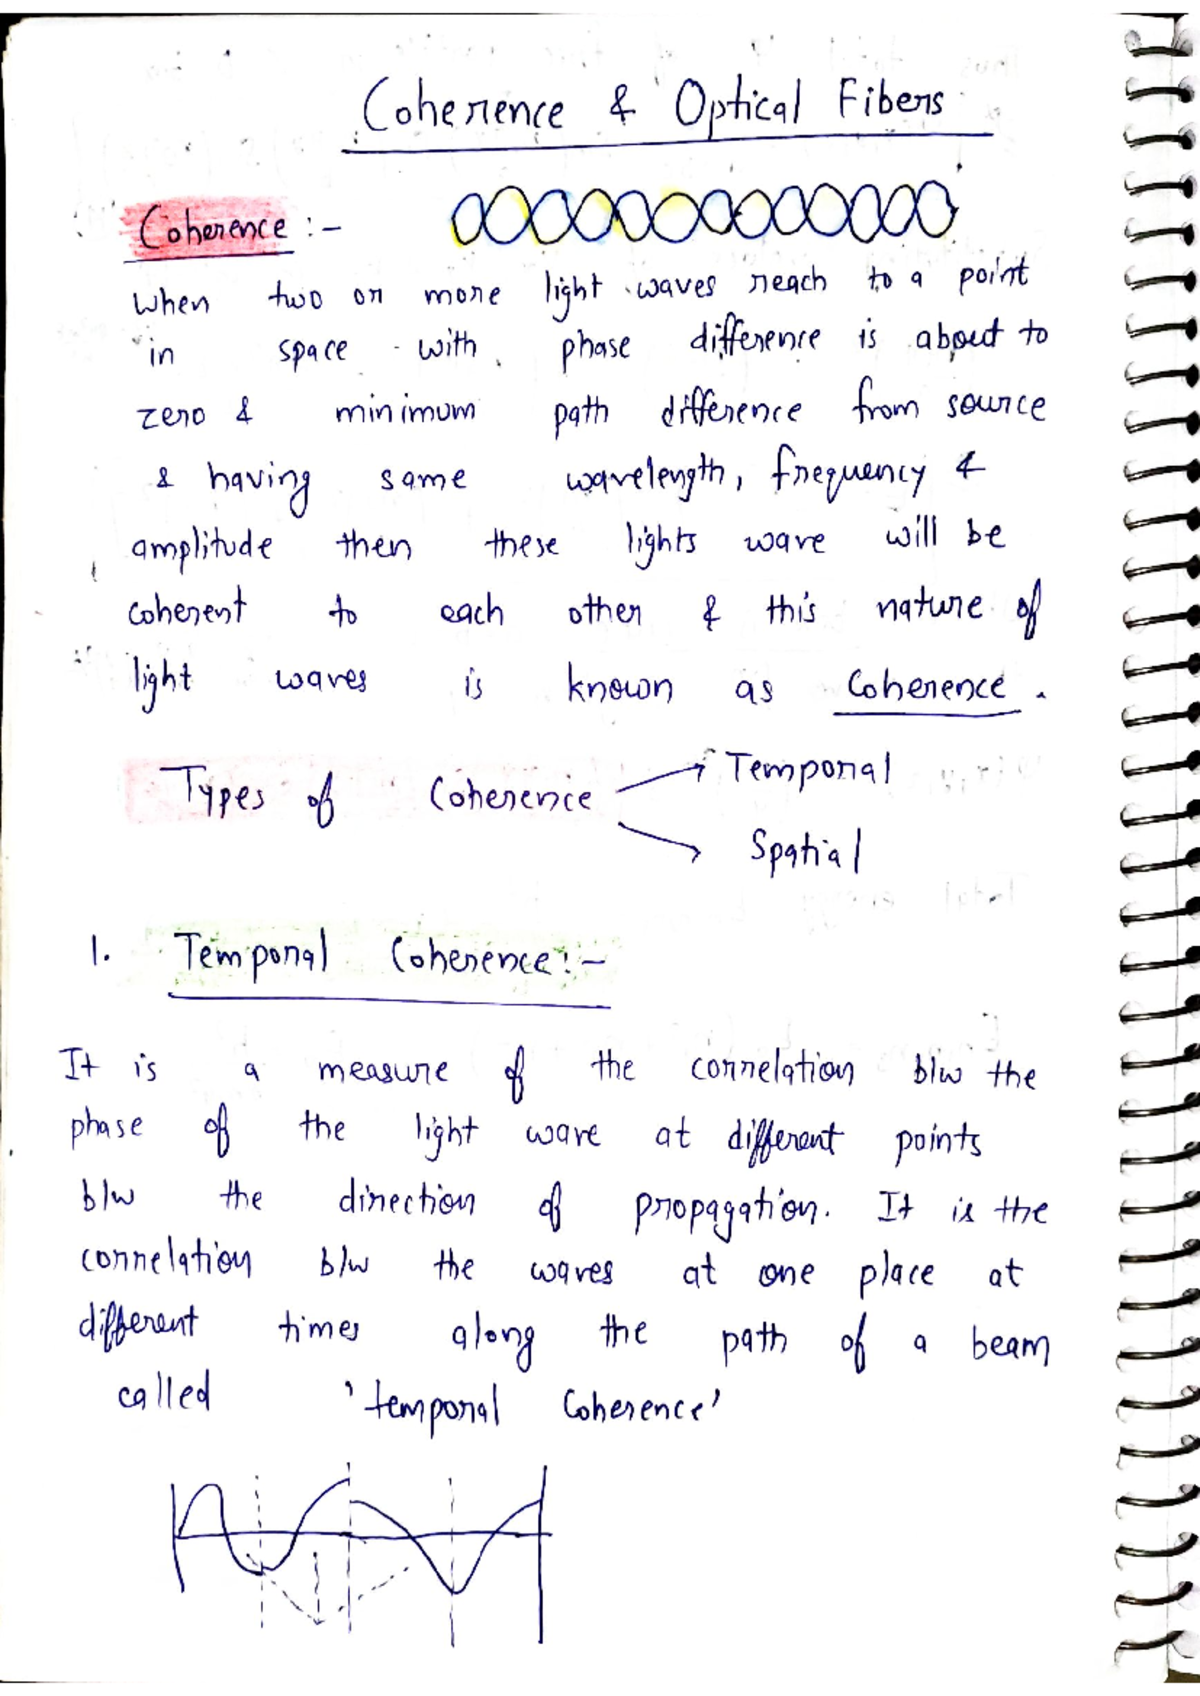 Coherence & Optical Fibers
Coherence :-
When two or more light waves reach to a point
in space with phase difference is about to
zero & minimum path difference from source
& having same wavelength, frequency &
amplitude then these lights wave will be
coherent to each other & this nature of
light waves is known as Coherence.
Types of Coherence → Temporal
→ Spatial
1. Temporal Coherence :-
It is a measure of the correlation b/w the
phase of the light wave at different points
b/w the direction of propagation. It is the
correlation b/w the waves at one place at
different times along the path of a beam
called 'temporal Coherence'